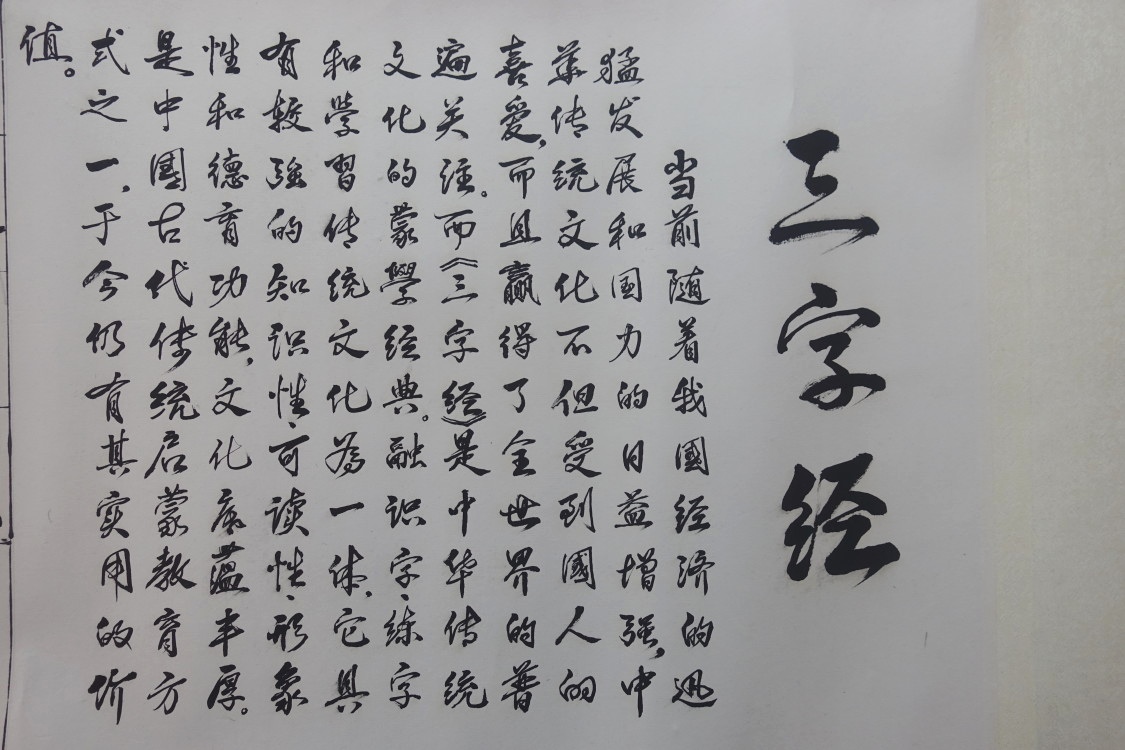 三字经
当前随着我国经济的迅
猛发展和国力的日益增强,中
华传统文化不但受到國人的
喜爱,而且赢得了全世界的普
遍关注。而《三字经》是中华传统
文化的蒙學经典。融识字、练字
和学習传统文化為一体,它具
有较强的知识性、可读性、形象
性和德育功能,文化底蕴丰厚。
是中國古代传统启蒙教育方
式之一,于今仍有其实用的价
值。